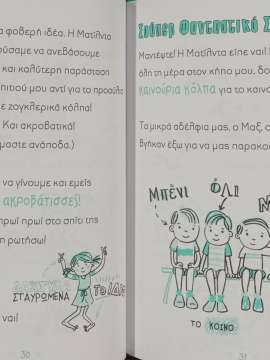 α φοβερή ιδέα. Η Ματίλντα
ούσαμε να ανεβάσουμε
και καλύτερη παράσταση
πιτιού μου αντί για το προαύλι
ε ζογκλερικά κόλπα!
Και ακροβατικά!
μαστε ανάποδα.)
να γίνουμε και εμείς
ακροβάτισσες!
πρωί πρωί στο σπίτι της
ρωτήσω!
ΔΑΧΤΥΛ
ΣΤΑΥΡΩΜΕΝΑ
ναι!
30
Σούπερ Φανταστικό Σ
Μάντεψε! Η Ματίλντα είπε ναι! Κ
όλη τη μέρα στον κήπο μου, δο
καινούρια κόλπα για το κοινό
Τα μικρά αδέλφια μας, ο Μαξ, ο
βγήκαν έξω για να μας παρακο
ΜΠΕΝΙ
ΟΛΙ
ΤΟ ΚΟΙΝΟ
31